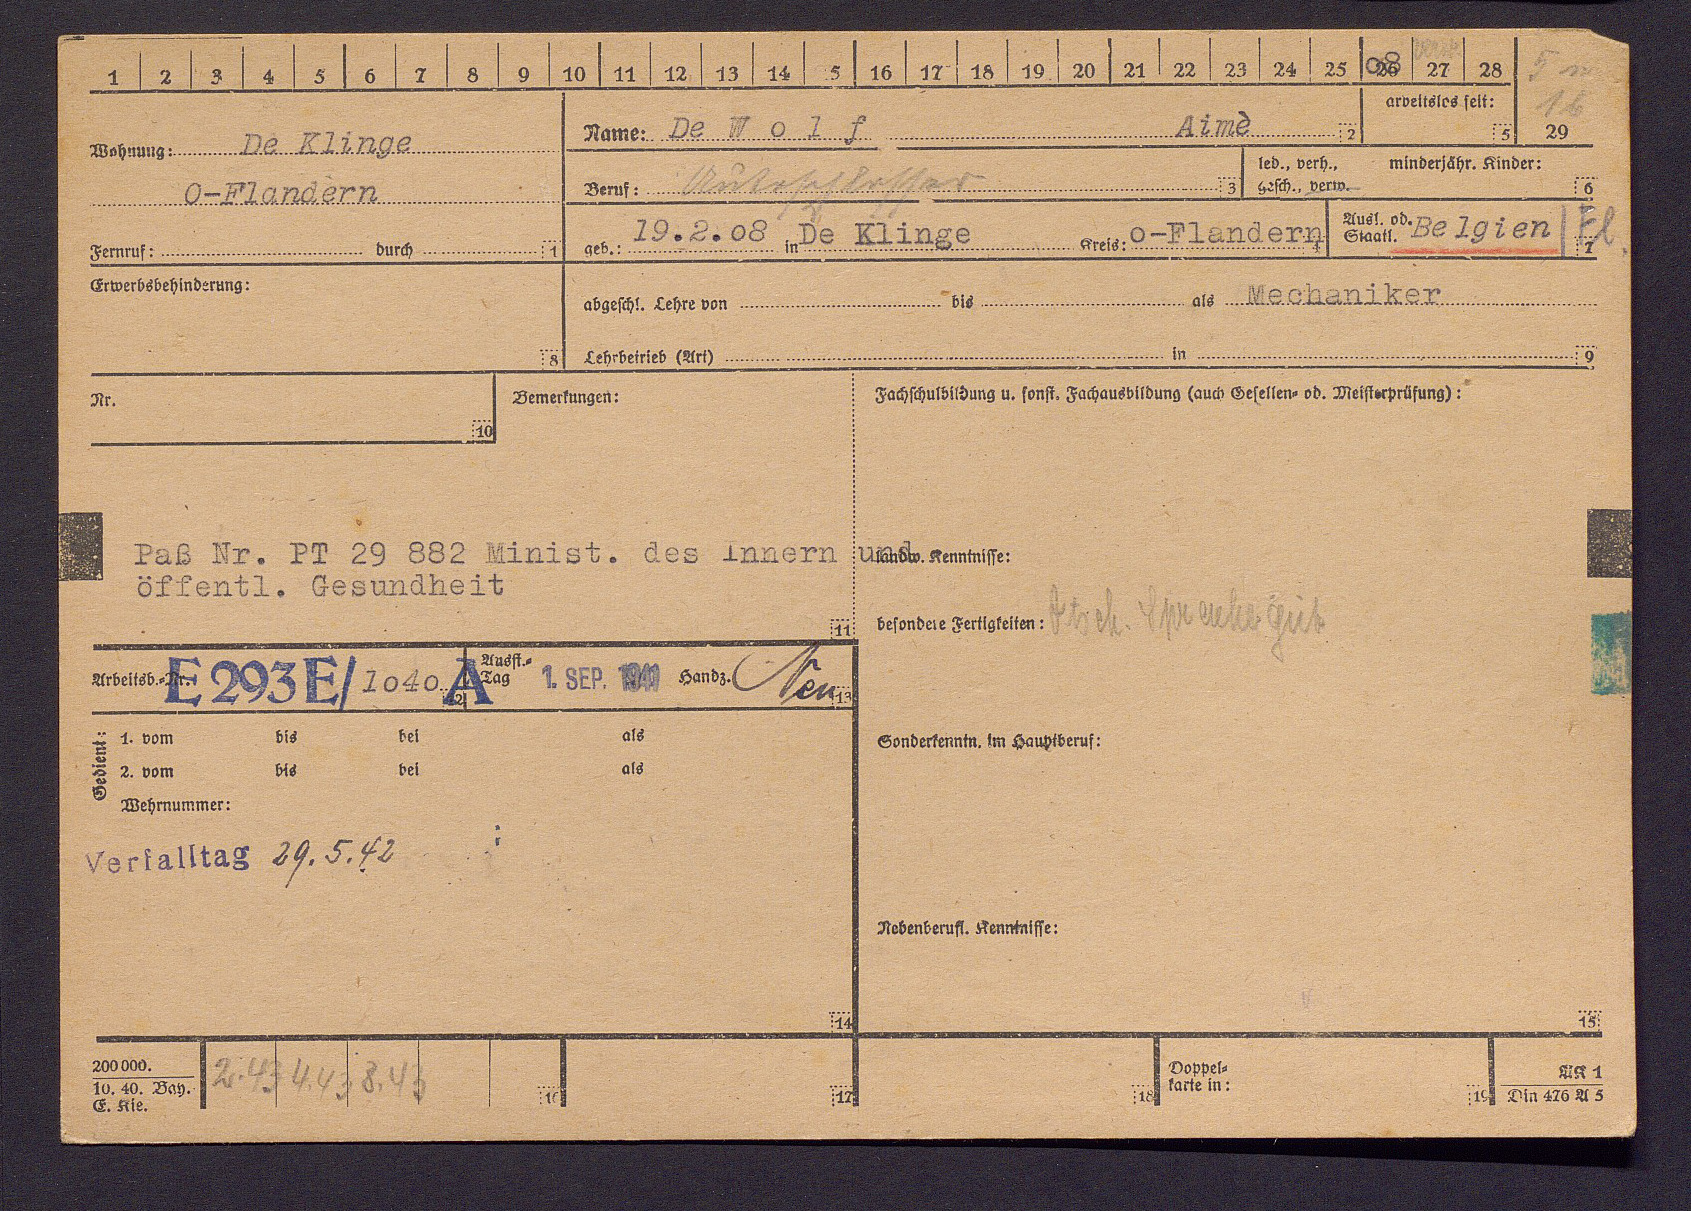 1 2 3 4 5 6 7 8 9 10 11 12 13 14 15 16 17 18 19 20 21 22 23 24 25 26 27 28
08
5
16
29
arbeitslos seit:
5
Name: De Wolf Aimè 2
Wohnung: De Klinge
O-Flandern
Fernruf: durch 1
Beruf: Autoschlosser 3
led., verh., gesch., verw.
minderjähr. Kinder: 6
geb.: 19.2.08 in De Klinge Kreis: O-Flandern 4
Ausl. od. Staatl. Belgien Fl. 7
Erwerbsbehinderung:
8
abgeschl. Lehre von bis als Mechaniker
Lehrbetrieb (Art) in 9
Nr.
10
Bemerkungen:
Fachschulbildung u. sonst. Fachausbildung (auch Gesellen- od. Meisterprüfung):
Paß Nr. PT 29 882 Minist. des Innern und
öffentl. Gesundheit
11
landw. Kenntnisse:
besondere Fertigkeiten: Dtsch. Sprache gut
Arbeitsb.-Nr. E 293 E/1040 A 12
Ausst.-Tag 1. SEP. 1941 Handz. Neu 13
Sonderkenntn. im Hauptberuf:
Gedient:
1. vom bis bei als
2. vom bis bei als
Wehrnummer:
Verfalltag 29.5.42
14
Nebenberufl. Kenntnisse:
15
200 000.
10. 40. Bay.
E. Kie.
2.43 4.43 8.43
16
17
18
Doppel-
karte in:
19
AK 1
Din 476 A 5